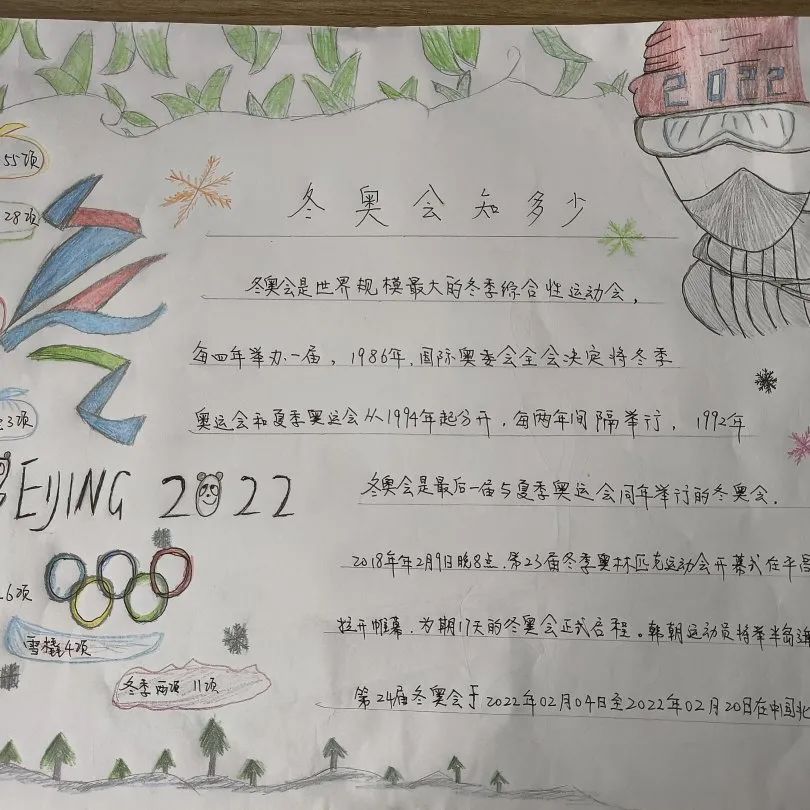 2022
55项
28项
冬奥会知多少
冬奥会是世界规模最大的冬季综合性运动会，
每四年举办一届，1986年，国际奥委会全会决定将冬季
奥运会和夏季奥运会从1994年起分开，每两年间隔举行，1992年
冬奥会是最后一届与夏季奥运会同年举行的冬奥会.
2018年年2月9日晚8点，第23届冬季奥林匹克运动会开幕式在平昌
拉开帷幕，为期17天的冬奥会正式启程。韩朝运动员将举半岛
第24届冬奥会于2022年02月04日至2022年02月20日在中国北
3项
BEIJING 2022
6项
雪橇4项
冬季两项 11项